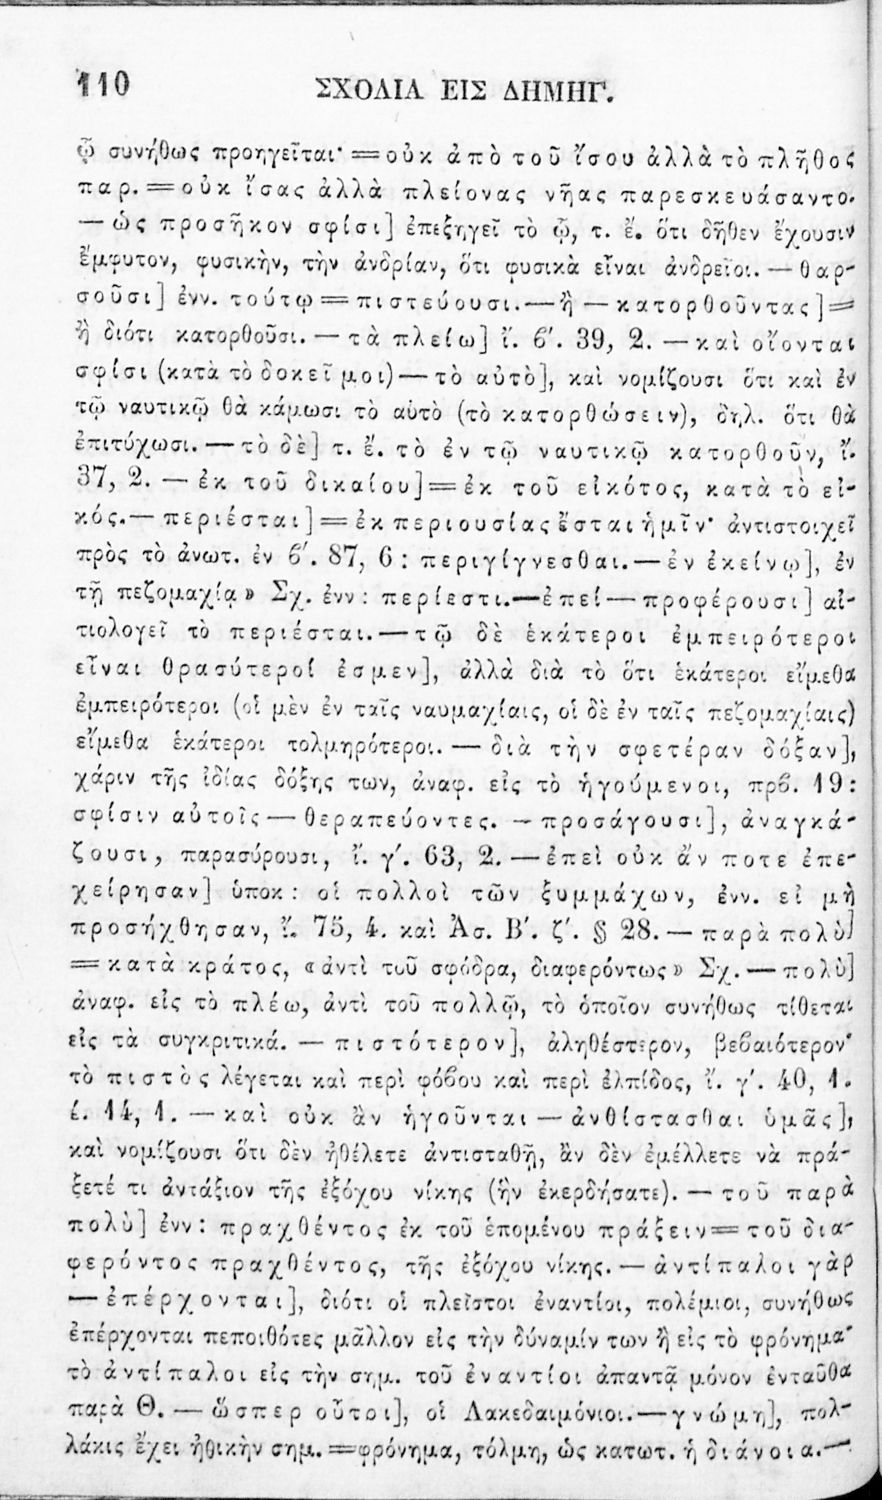 110 ΣΧΟΛΙΑ ΕΙΣ ΔΗΜΗΓ.
ᾧ συνήθως προηγεῖται· = οὐκ ἀπὸ τοῦ ἴσου ἀλλὰ τὸ πλῆθος
παρ. = οὐκ ἴσας ἀλλὰ πλείονας νῆας παρεσκευάσαντο.
— ὡς προσῆκον σφίσι] ἐπεξηγεῖ τὸ ᾧ, τ. ἔ. ὅτι δῆθεν ἔχουσιν
ἔμφυτον, φυσικὴν, τὴν ἀνδρίαν, ὅτι φυσικὰ εἶναι ἀνδρεῖοι. — θαρ-
σοῦσι] ἐνν. τούτῳ = πιστεύουσι. — ἢ — κατορθοῦντας] =
ἢ διότι κατορθοῦσι. — τὰ πλείω] ἴ. ϐ′. 39, 2. — καὶ οἴονται
σφίσι (κατὰ τὸ δοκεῖ μοι) — τὸ αὐτὸ], καὶ νομίζουσι ὅτι καὶ ἐν
τῷ ναυτικῷ θὰ κάμωσι τὸ αὐτὸ (τὸ κατορθώσειν), δηλ. ὅτι θὰ
ἐπιτύχωσι. — τὸ δὲ] τ. ἔ. τὸ ἐν τῷ ναυτικῷ κατορθοῦν, ἴ.
37, 2. — ἐκ τοῦ δικαίου] = ἐκ τοῦ εἰκότος, κατὰ τὸ εἰ-
κός. — περιέσται] = ἐκ περιουσίας ἔσται ἡμῖν· ἀντιστοιχεῖ
πρὸς τὸ ἀνωτ. ἐν ϐ′. 87, 6 : περιγίγνεσθαι. — ἐν ἐκείνῳ], ἐν
τῇ πεζομαχίᾳ» Σχ. ἐνν : περίεστι. — ἐπεί — προφέρουσι] αἰ-
τιολογεῖ τὸ περιέσται. — τῷ δὲ ἑκάτεροι ἐμπειρότεροι
εἶναι θρασύτεροί ἐσμεν], ἀλλὰ διὰ τὸ ὅτι ἑκάτεροι εἴμεθα
ἐμπειρότεροι (οἱ μὲν ἐν ταῖς ναυμαχίαις, οἱ δὲ ἐν ταῖς πεζομαχίαις)
εἴμεθα ἑκάτεροι τολμηρότεροι. — διὰ τὴν σφετέραν δόξαν],
χάριν τῆς ἰδίας δόξης των, ἀναφ. εἰς τὸ ἡγούμενοι, πρϐ. 19 :
σφίσιν αὐτοῖς — θεραπεύοντες. — προσάγουσι], ἀναγκά-
ζουσι, παρασύρουσι, ἴ. γ′. 63, 2. — ἐπεὶ οὐκ ἄν ποτε ἐπε-
χείρησαν] ὑποκ : οἱ πολλοὶ τῶν ξυμμάχων, ἐνν. εἰ μὴ
προσήχθησαν, ἴ. 75, 4. καὶ Ἀσ. Β′. ζ′. § 28. — παρὰ πολὺ]
= κατὰ κράτος, «ἀντὶ τοῦ σφόδρα, διαφερόντως» Σχ. — πολὺ]
ἀναφ. εἰς τὸ πλέω, ἀντὶ τοῦ πολλῷ, τὸ ὁποῖον συνήθως τίθεται
εἰς τὰ συγκριτικά. — πιστότερον], ἀληθέστερον, βεϐαιότερον·
τὸ πιστὸς λέγεται καὶ περὶ φόϐου καὶ περὶ ἐλπίδος, ἴ. γ′. 40, 1.
έ. 14, 1. — καὶ οὐκ ἂν ἡγοῦνται — ἀνθίστασθαι ὑμᾶς],
καὶ νομίζουσι ὅτι δὲν ἠθέλετε ἀντισταθῇ, ἂν δὲν ἐμέλλετε νὰ πρά-
ξετέ τι ἀντάξιον τῆς ἐξόχου νίκης (ἣν ἐκερδήσατε). — τοῦ παρὰ
πολὺ] ἐνν : πραχθέντος ἐκ τοῦ ἑπομένου πράξειν = τοῦ δια-
φερόντος πραχθέντος, τῆς ἐξόχου νίκης. — ἀντίπαλοι γὰρ
— ἐπέρχονται], διότι οἱ πλεῖστοι ἐναντίοι, πολέμιοι, συνήθως
ἐπέρχονται πεποιθότες μᾶλλον εἰς τὴν δύναμίν των ἢ εἰς τὸ φρόνημα·
τὸ ἀντίπαλοι εἰς τὴν σημ. τοῦ ἐναντίοι ἀπαντᾷ μόνον ἐνταῦθα
παρὰ Θ. — ὥσπερ οὗτοι], οἱ Λακεδαιμόνιοι. — γνώμῃ], πολ-
λάκις ἔχει ἠθικὴν σημ. = φρόνημα, τόλμη, ὡς κατωτ. ἡ διάνοια. —